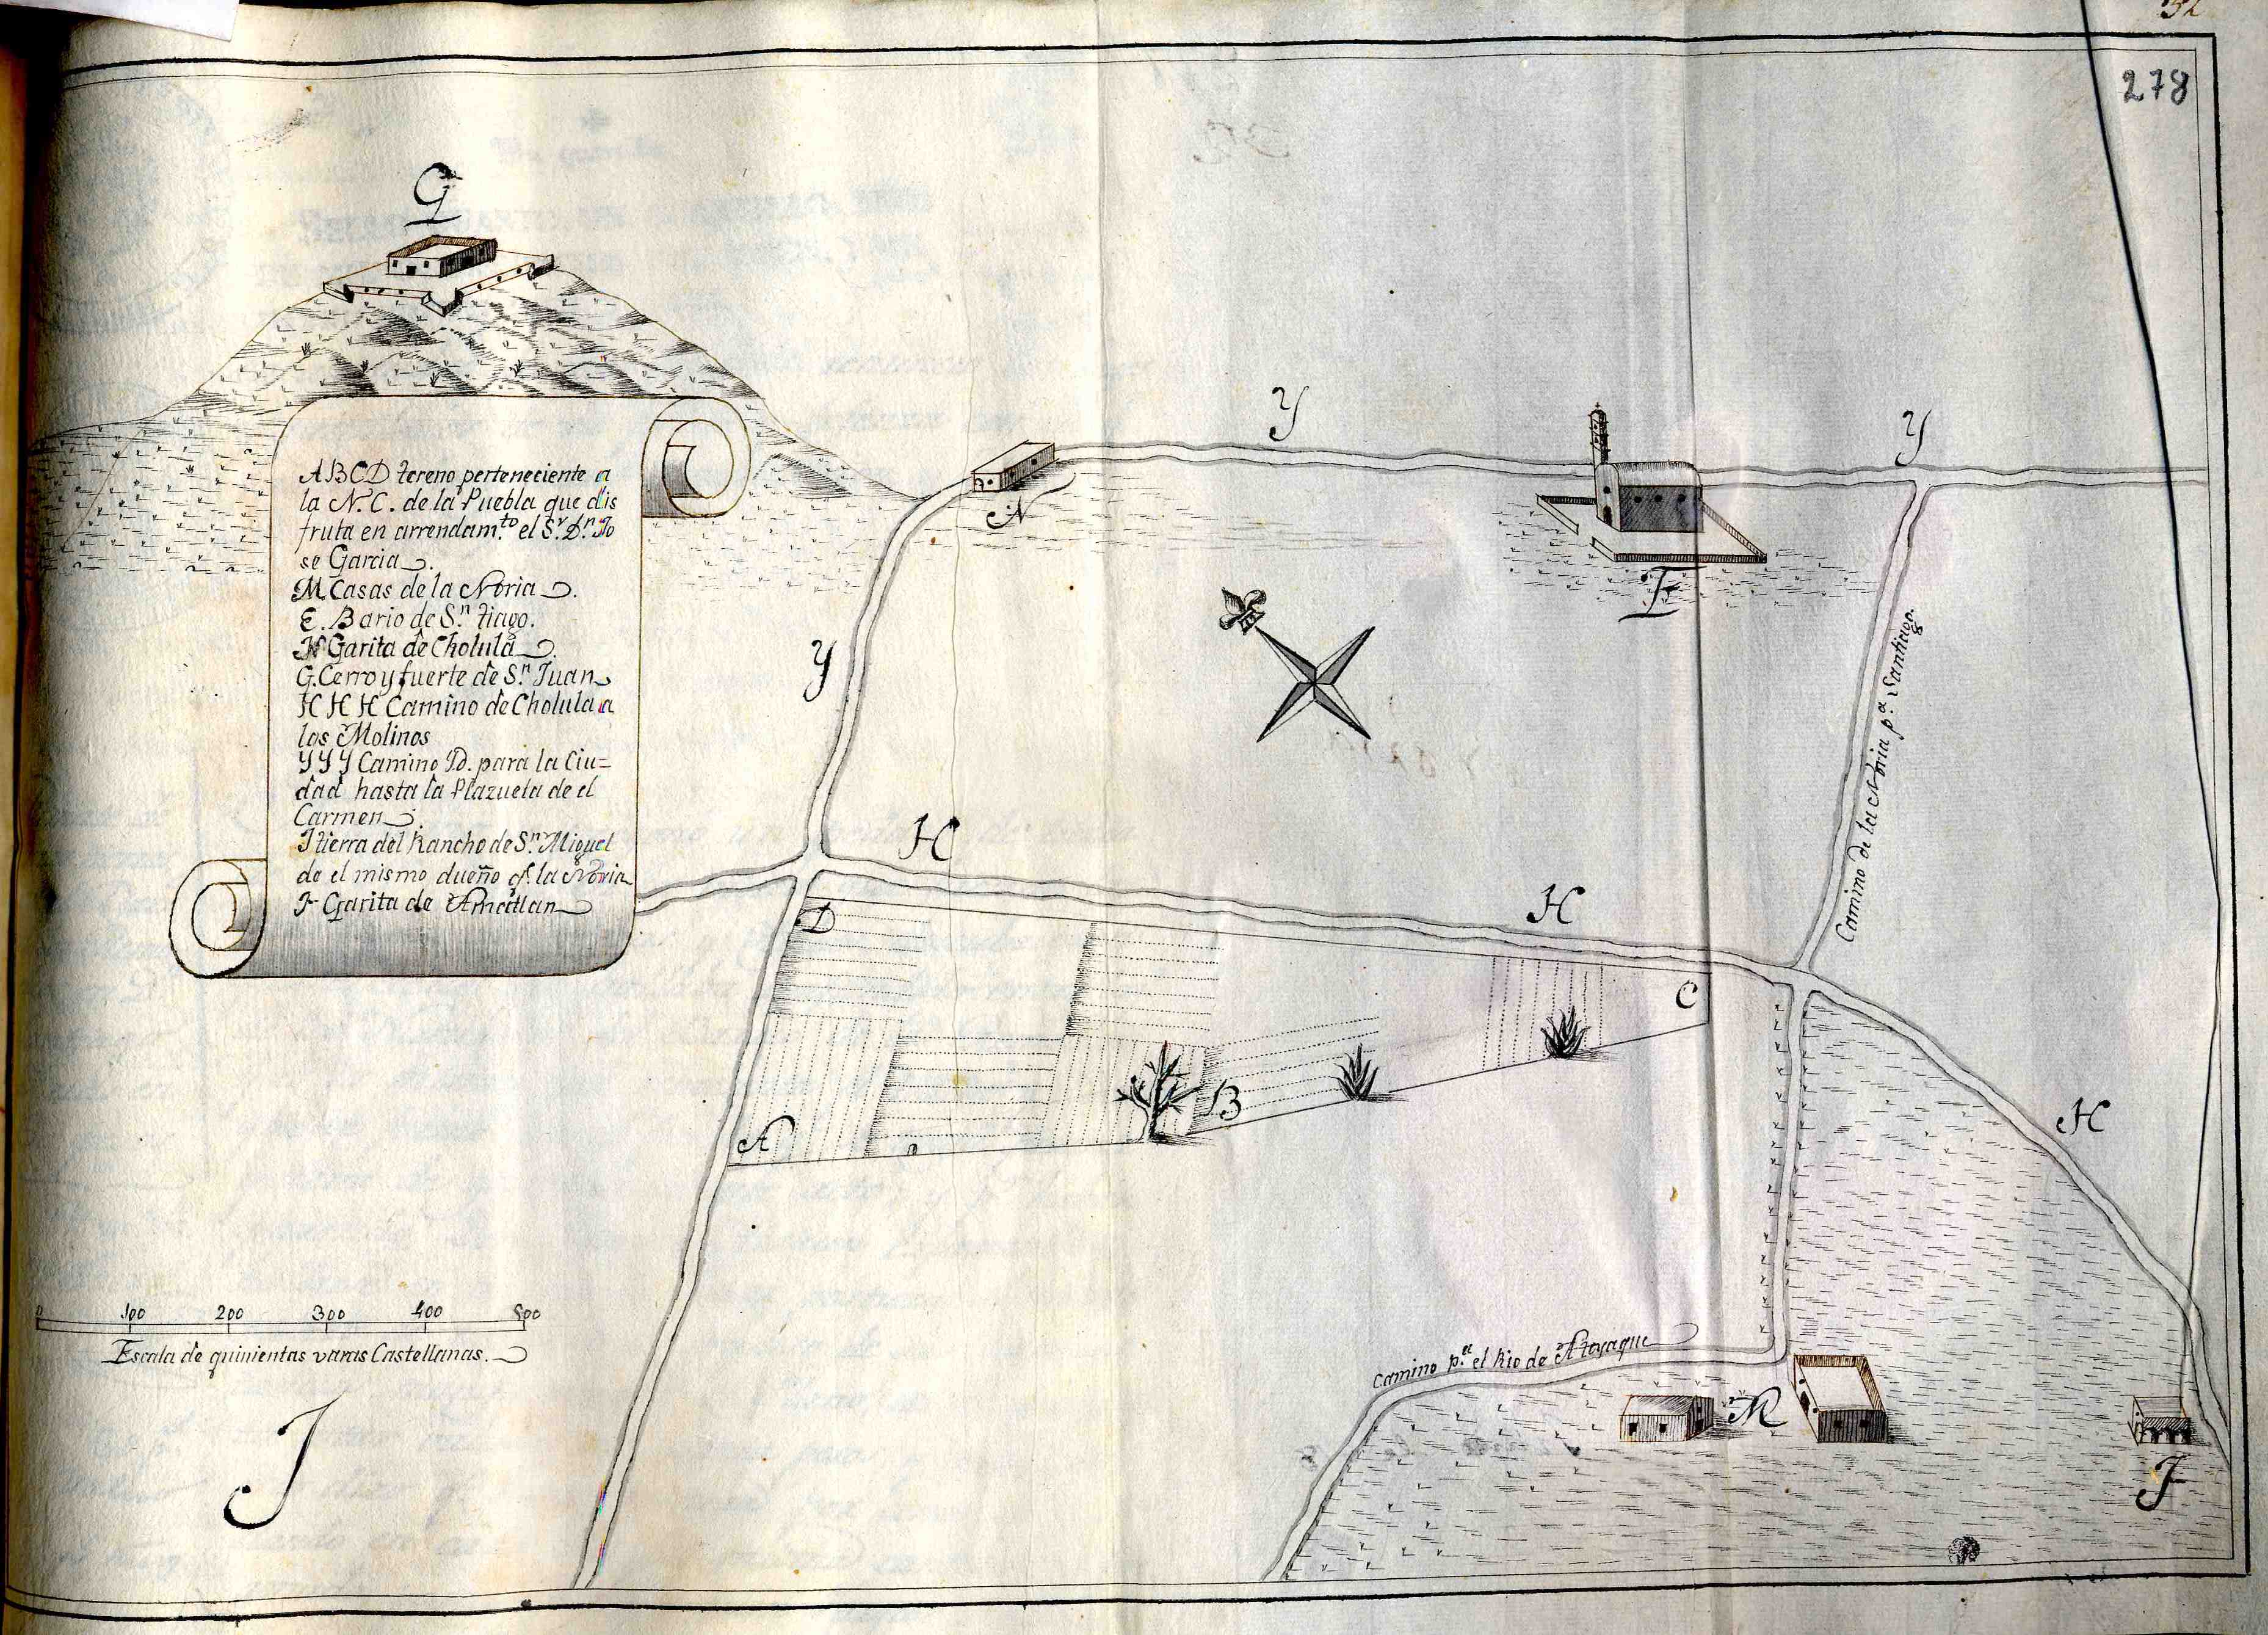 278
G
ABCD tereno perteneciente a
la N. C. de la Puebla que dis
fruta en arrendam.to el S.r D.n Jo
se Garcia.
M Casas de la Noria.
E. Bario de S.n tiago.
N Garita de Cholula.
G. Cerro y fuerte de S.n Juan
H H H Camino de Cholula a
los Molinos
Y Y Y Camino Yd. para la Ciu=
dad hasta la Plazuela de el
Carmen.
J tierra del Rancho de S.n Miguel
de el mismo dueño q.e la Noria
F Garita de Amatlan
Y
Y
N
E
Y
Camino de la Noria p.a Santiago
H
H
D
C
B
A
H
0 100 200 300 400 500
Escala de quinientas varas Castellanas.
Camino p.a el Rio de Atoyaque
M
J
F